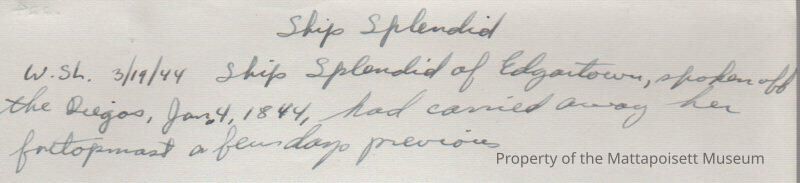 Ship Splendid
W. Sh. 3/19/44 Ship Splendid of Edgartown, spoken off
the Diegos, Jan. 4, 1844, had carried away her
foretopmast a few days previous
Property of the Mattapoisett Museum